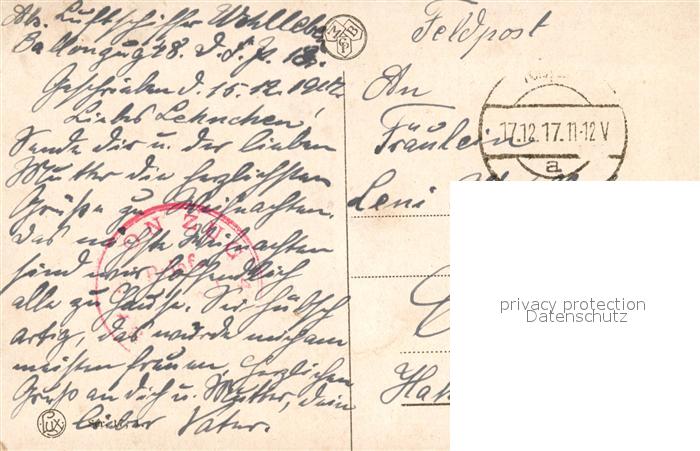 Ab. Luftschiffer Wohlleben
Ballonzug 48. D. F. P. 18.
Geschrieben d. 15.12.1917
Liebes Lehnchen!
Sende dir u. der lieben
Mutter die herzlichsten
Grüße zu Weihnachten.
Das nächste Weihnachten
sind wir hoffendlich
alle zu Hause. Sei hübsch
artig, das würde mich am
meisten freuen, herzlichen
Gruß an dich u. Mutter, dein
lieber Vater.
MBCP
Feldpost
An
Fräulein
Leni
17.12.17.11-12 V
a
Ha
ON ZUG
LUX
privacy protection
Datenschutz